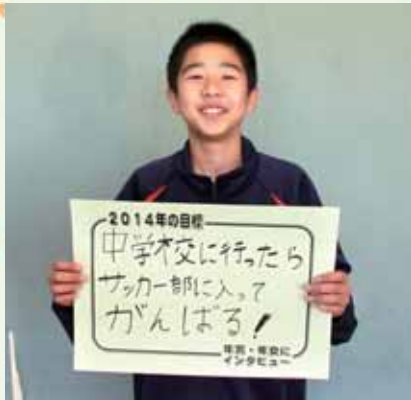 2014年の目標
中学校に行ったら
サッカー部に入って
がんばる!
年男・年女に
インタビュー